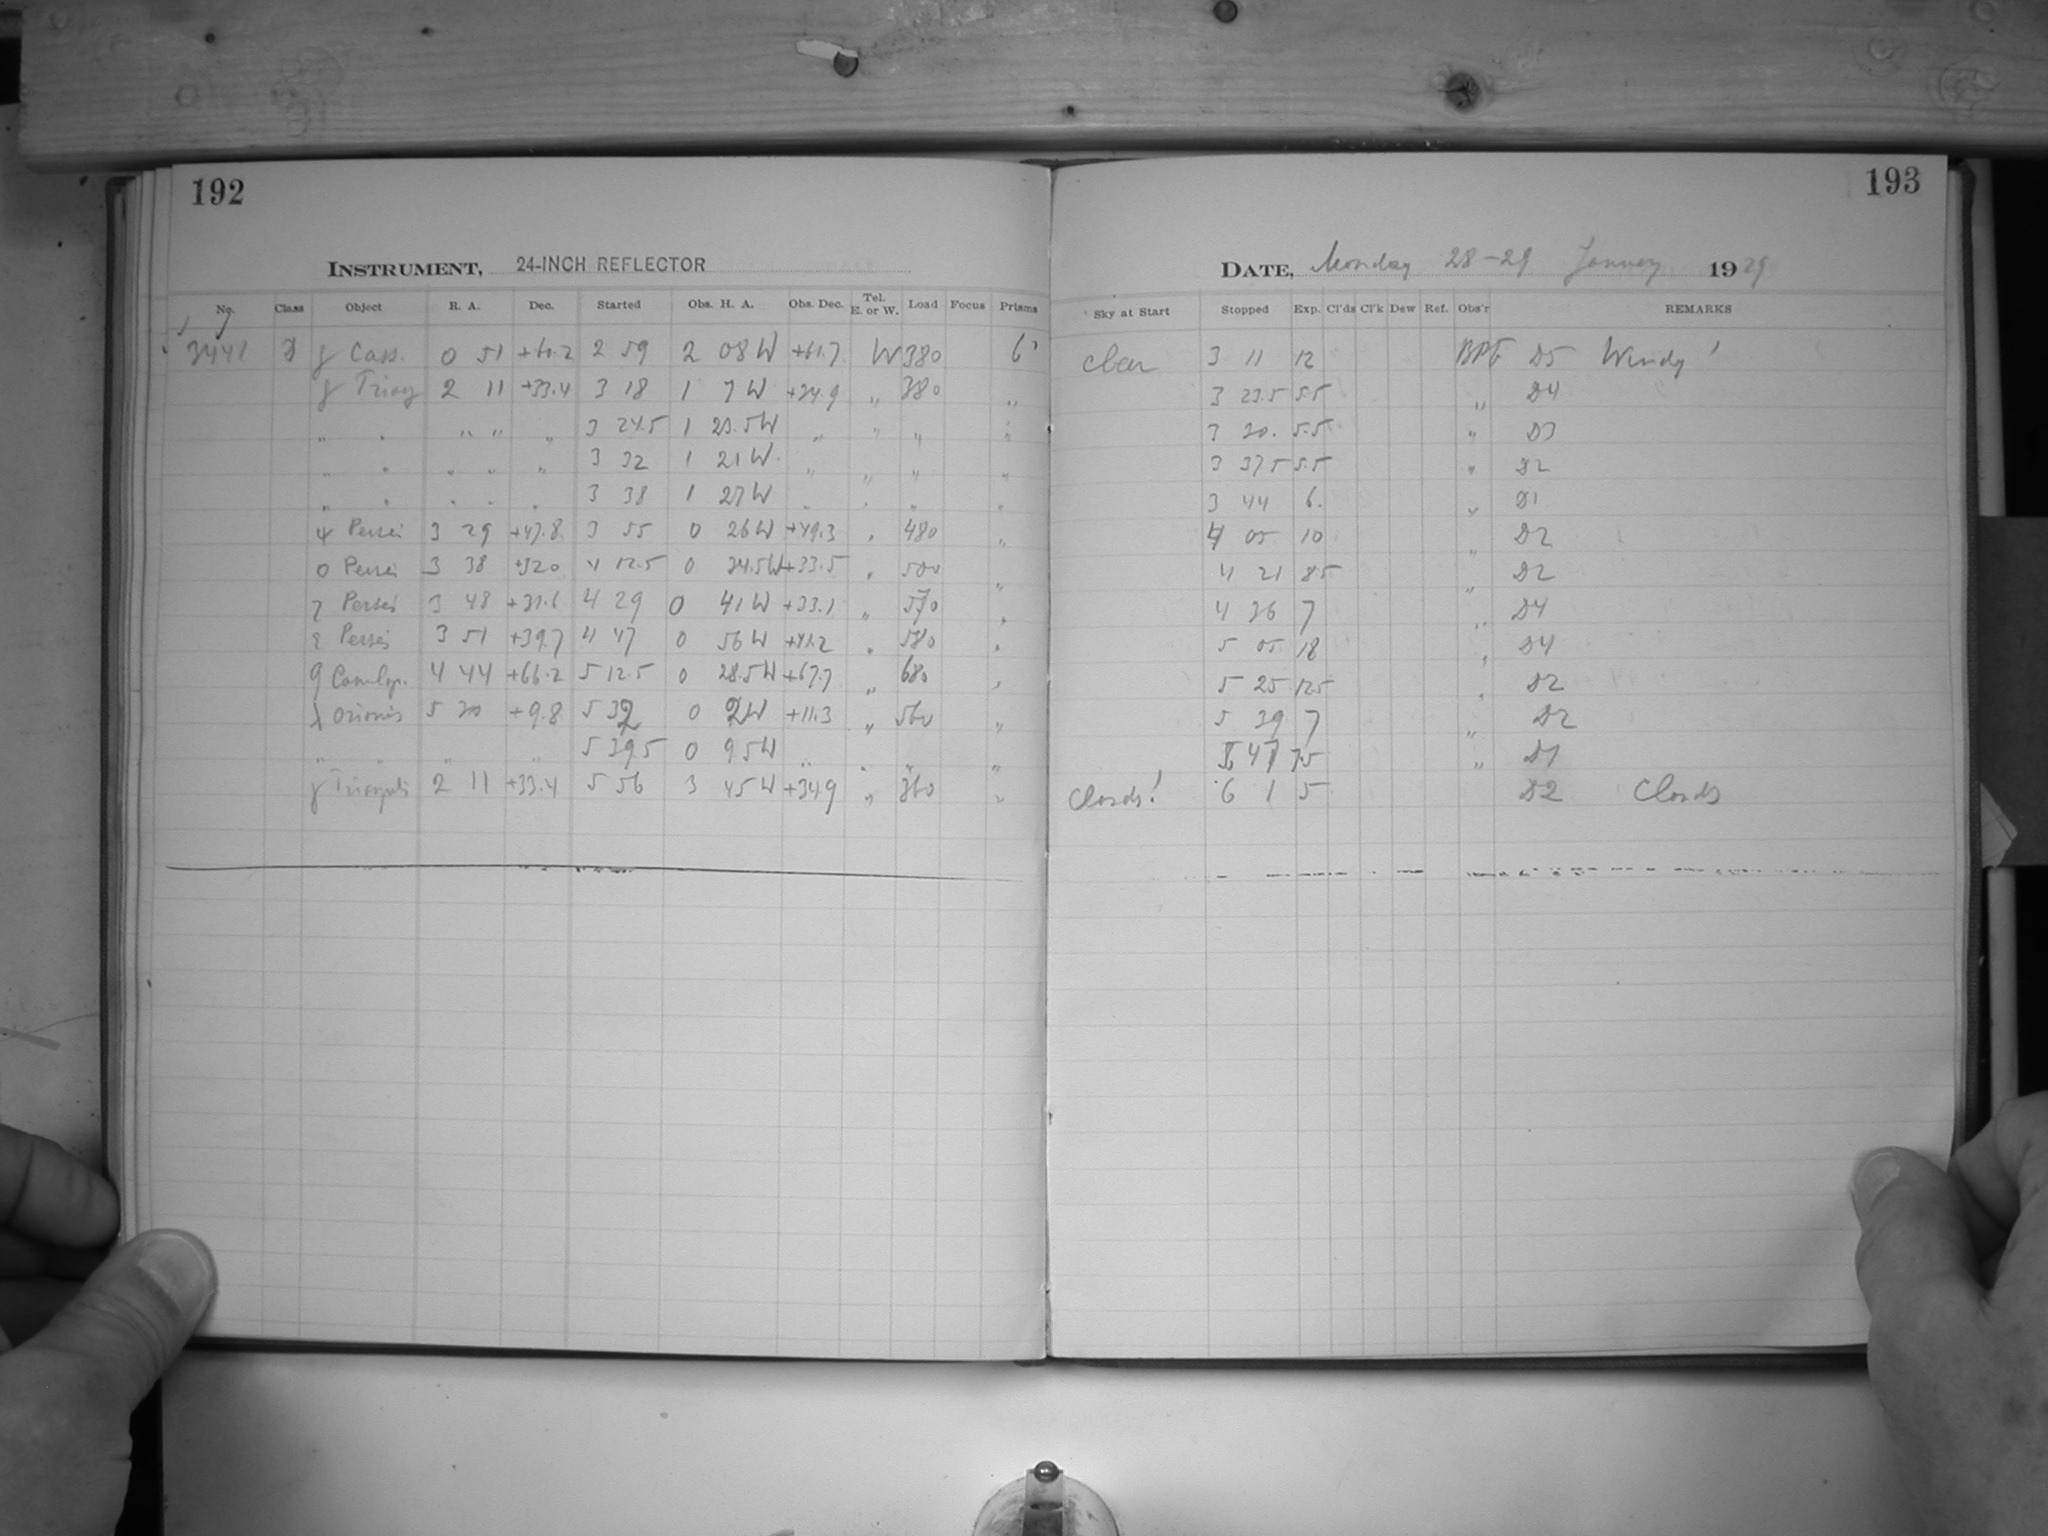 192
INSTRUMENT, 24-INCH REFLECTOR
No. Class Object R. A. Dec. Started Obs. H. A. Obs. Dec. Tel. E. or W. Load Focus Prisms
γ Cass. 0 51 +60.2 2 59 2 08 W +61.7 W 380 6'
γ Triang 2 11 +33.4 3 18 1 7 W +34.9 " 380 "
" " " " " 3 24.5 1 23.5 W " " " "
" " " " " 3 32 1 21 W " " " "
" " " " " 3 38 1 27 W " " " "
ψ Persei 3 29 +47.8 3 55 0 26 W +49.3 " 480 "
o Persei 3 38 +32.0 4 12.5 0 34.5 W +33.5 " 500 "
ζ Persei 3 48 +31.6 4 29 0 41 W +33.1 " 570 "
ε Persei 3 51 +39.7 4 47 0 56 W +41.2 " 580 "
9 Camelop. 4 44 +66.2 5 12.5 0 28.5 W +67.7 " 680 "
λ Orionis 5 30 +9.8 5 32 0 2 W +11.3 " 560 "
" " " " 5 39.5 0 9.5 W " " " "
γ Trianguli 2 11 +33.4 5 56 3 45 W +34.9 " 360 "
193
DATE, Monday 28-29 January 1929
Sky at Start Stopped Exp. Cl'ds Cl'k Dew Ref. Obs'r REMARKS
clear 3 11 12 D5 Windy!
3 23.5 5.5 " D4
3 30. 5.5 " D3
3 37.5 5.5 " D2
3 44 6. " D1
4 05 10 " D2
4 21 8.5 " D2
4 36 7 " D4
5 05 18 " D4
5 25 12.5 " D2
5 39 7 " D2
5 47 7.5 " D1
Clouds! 6 1 5 D2 Clouds